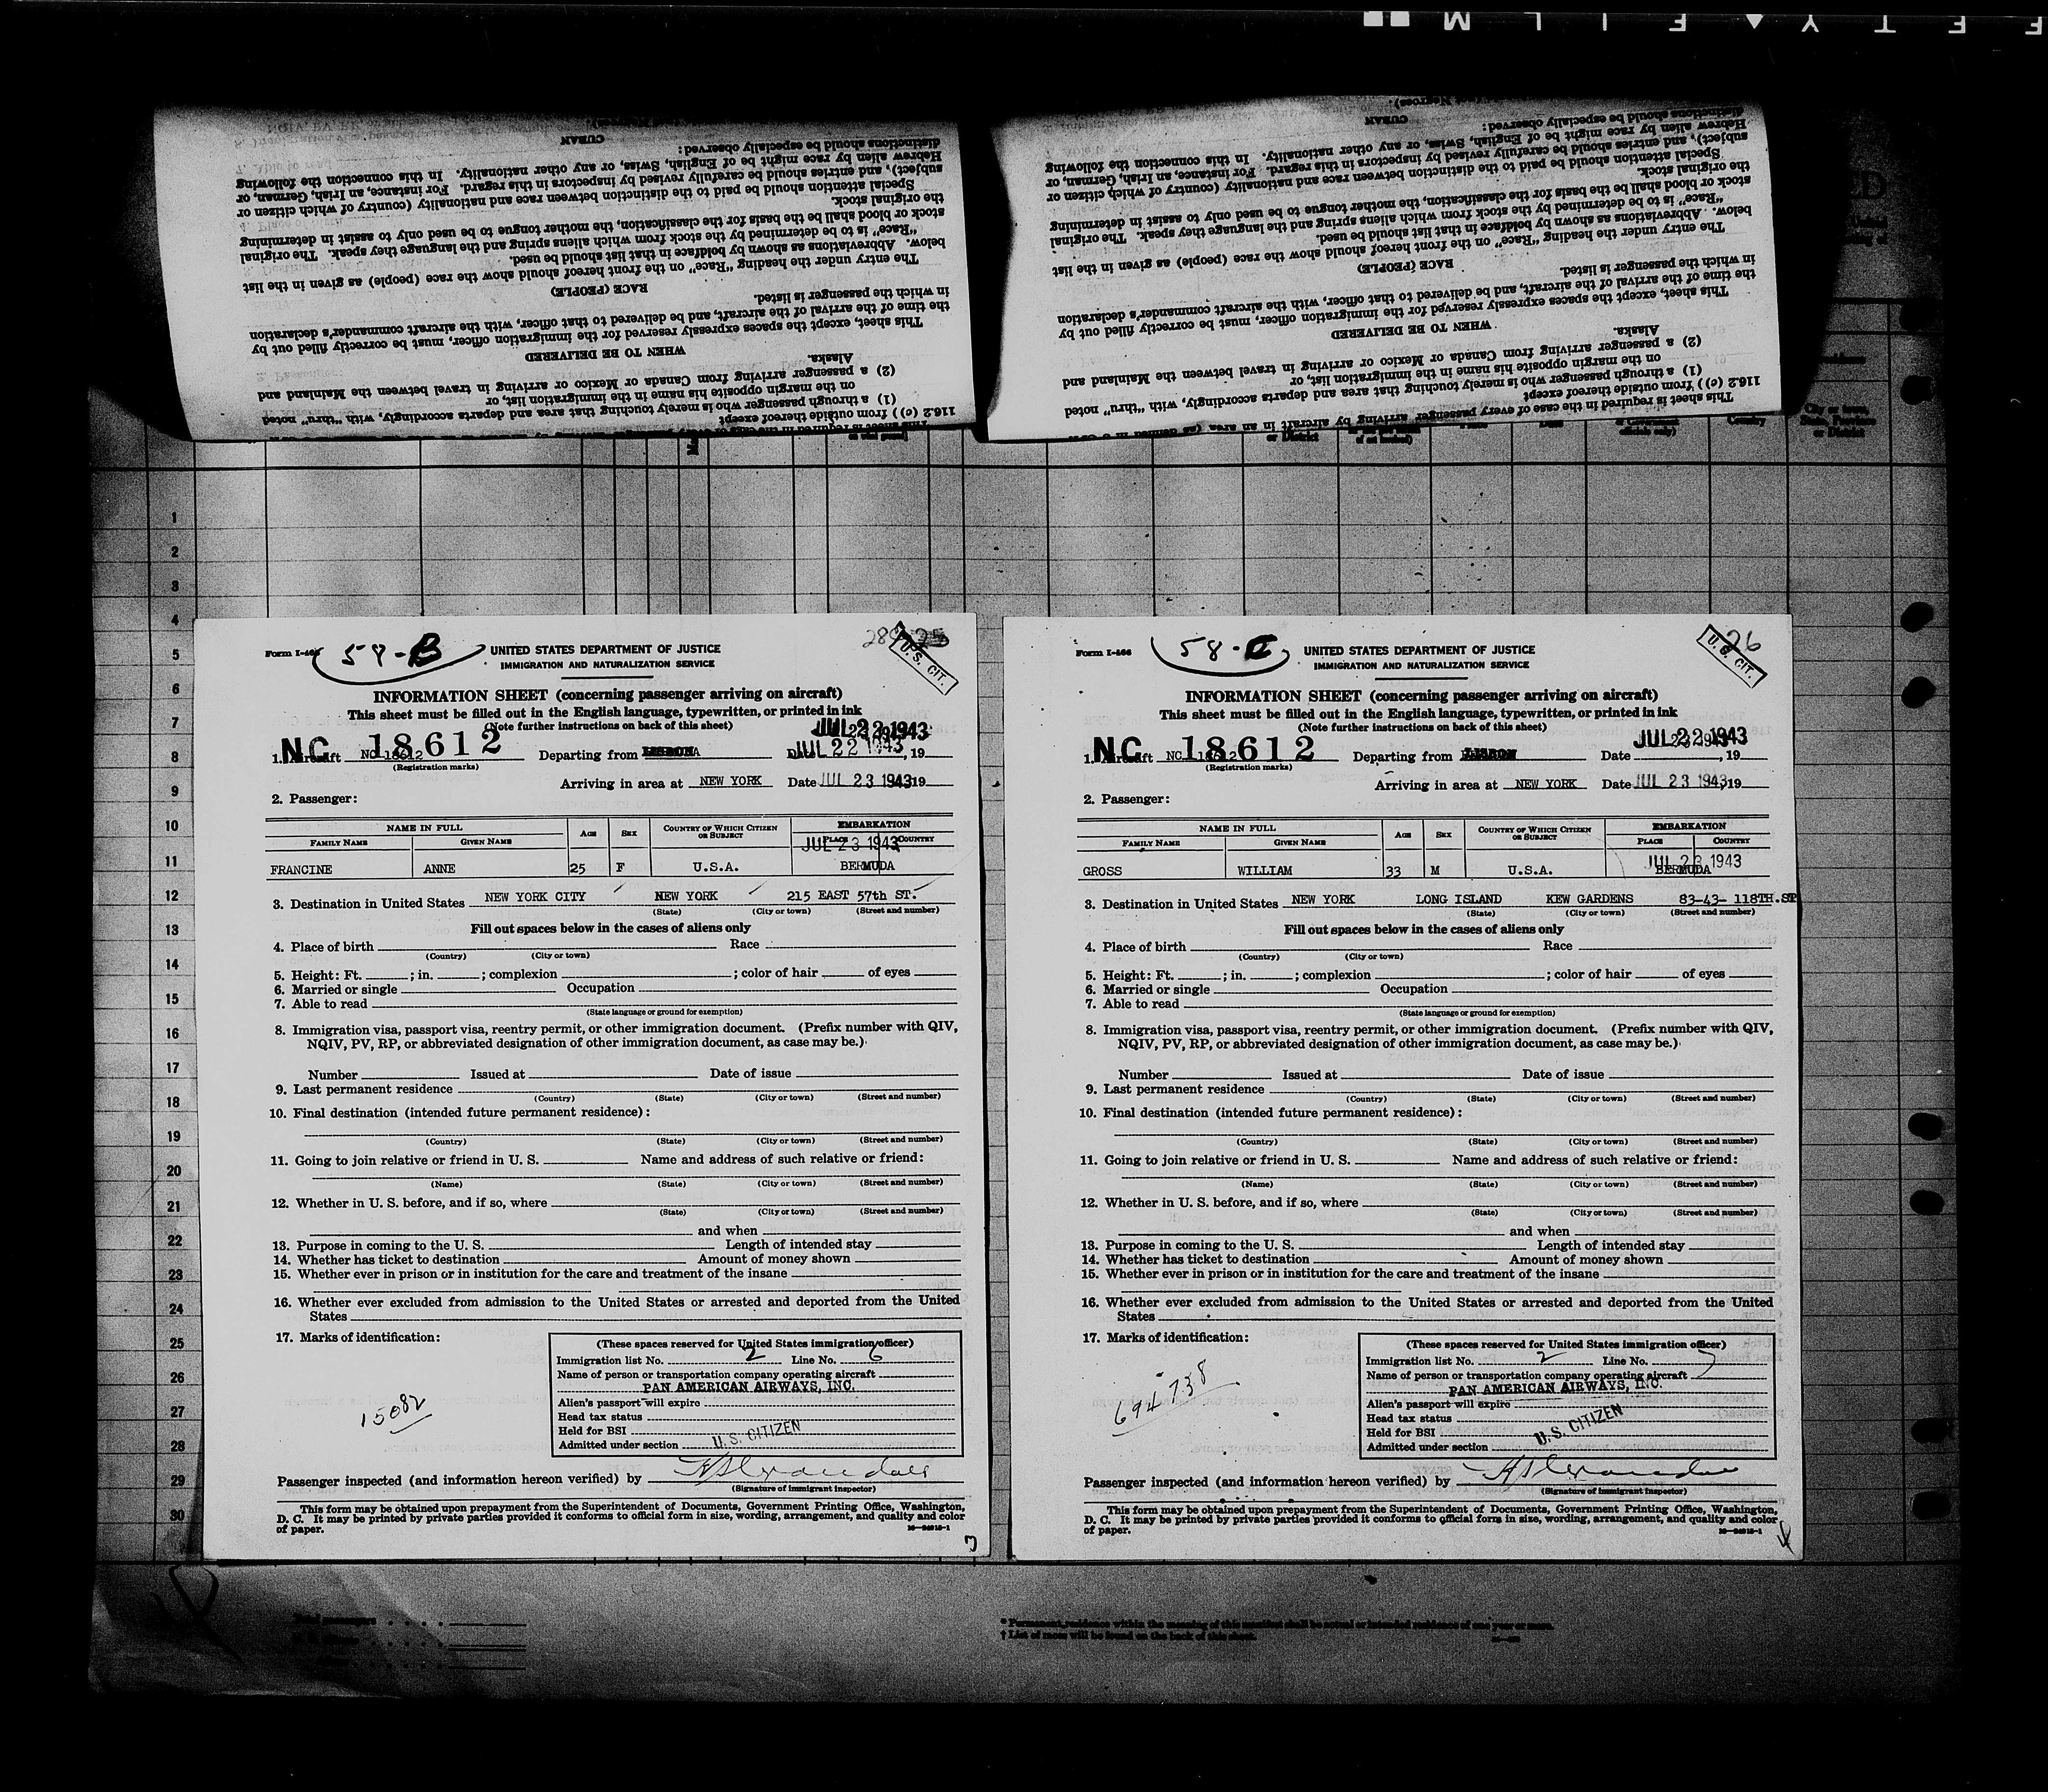 F E T Y ▲ F I L M
This sheet is required in the case of every passenger arriving by aircraft in an area (as defined in
116.2 (c)) from outside thereof except
(1) a through passenger who is merely touching that area and departs accordingly, with "thru" noted
on the margin opposite his name in the immigration list, or
(2) a passenger arriving from Canada or Mexico or arriving in travel between the Mainland and
Alaska.
WHEN TO BE DELIVERED
This sheet, except the spaces expressly reserved for the immigration officer, must be correctly filled out by
the time of the arrival of the aircraft, and be delivered to that officer, with the aircraft commander's declaration
in which the passenger is listed.
RACE (PEOPLE)
The entry under the heading "Race" on the front hereof should show the race (people) as given in the list
below. Abbreviations as shown by boldface in that list should be used.
"Race" is to be determined by the stock from which aliens spring and the language they speak. The original
stock or blood shall be the basis for the classification, the mother tongue to be used only to assist in determining
the original stock.
Special attention should be paid to the distinction between race and nationality (country of which citizen or
subject), and entries should be carefully revised by inspectors in this regard. For instance, an Irish, German, or
Hebrew alien by race might be of English, Swiss, or any other nationality. In this connection the following
distinctions should be especially observed:
CUBAN
This sheet is required in the case of every passenger arriving by aircraft in an area (as defined in
116.2 (c)) from outside thereof except
(1) a through passenger who is merely touching that area and departs accordingly, with "thru" noted
on the margin opposite his name in the immigration list, or
(2) a passenger arriving from Canada or Mexico or arriving in travel between the Mainland and
Alaska.
WHEN TO BE DELIVERED
This sheet, except the spaces expressly reserved for the immigration officer, must be correctly filled out by
the time of the arrival of the aircraft, and be delivered to that officer, with the aircraft commander's declaration
in which the passenger is listed.
RACE (PEOPLE)
The entry under the heading "Race" on the front hereof should show the race (people) as given in the list
below. Abbreviations as shown by boldface in that list should be used.
"Race" is to be determined by the stock from which aliens spring and the language they speak. The original
stock or blood shall be the basis for the classification, the mother tongue to be used only to assist in determining
the original stock.
Special attention should be paid to the distinction between race and nationality (country of which citizen or
subject), and entries should be carefully revised by inspectors in this regard. For instance, an Irish, German, or
Hebrew alien by race might be of English, Swiss, or any other nationality. In this connection the following
distinctions should be especially observed:
CUBAN
1
2
3
4
5
6
7
8
9
10
11
12
13
14
15
16
17
18
19
20
21
22
23
24
25
26
27
28
29
30
Form I-466
58-B
UNITED STATES DEPARTMENT OF JUSTICE
IMMIGRATION AND NATURALIZATION SERVICE
25
U. S. CIT.
INFORMATION SHEET (concerning passenger arriving on aircraft)
This sheet must be filled out in the English language, typewritten, or printed in ink
(Note further instructions on back of this sheet)
NC 18612
JUL 22 1943
1. Aircraft NC 18612 Departing from LISBON Date JUL 22 1943, 19
(Registration marks)
Arriving in area at NEW YORK Date JUL 23 1943 19
2. Passenger:
NAME IN FULL AGE SEX COUNTRY OF WHICH CITIZEN OR SUBJECT EMBARKATION
FAMILY NAME GIVEN NAME PLACE COUNTRY
JUL 23 1943
FRANCINE ANNE 25 F U.S.A. BERMUDA
3. Destination in United States NEW YORK CITY NEW YORK 215 EAST 57th ST.
(State) (City or town) (Street and number)
Fill out spaces below in the cases of aliens only
4. Place of birth Race
(Country) (City or town)
5. Height: Ft. ; in. ; complexion ; color of hair of eyes
6. Married or single Occupation
7. Able to read
(State language or ground for exemption)
8. Immigration visa, passport visa, reentry permit, or other immigration document. (Prefix number with QIV,
NQIV, PV, RP, or abbreviated designation of other immigration document, as case may be.)
Number Issued at Date of issue
9. Last permanent residence
(Country) (State) (City or town) (Street and number)
10. Final destination (intended future permanent residence):
(Country) (State) (City or town) (Street and number)
11. Going to join relative or friend in U. S. Name and address of such relative or friend:
(Name) (State) (City or town) (Street and number)
12. Whether in U. S. before, and if so, where
(State) (City or town) (Street and number)
and when
13. Purpose in coming to the U. S. Length of intended stay
14. Whether has ticket to destination Amount of money shown
15. Whether ever in prison or in institution for the care and treatment of the insane
16. Whether ever excluded from admission to the United States or arrested and deported from the United
States
17. Marks of identification:
15082
(These spaces reserved for United States immigration officer)
Immigration list No. 2 Line No. 6
Name of person or transportation company operating aircraft
PAN AMERICAN AIRWAYS, INC.
Alien's passport will expire
Head tax status
Held for BSI
Admitted under section U. S. CITIZEN
Passenger inspected (and information hereon verified) by
(Signature of immigrant inspector)
This form may be obtained upon prepayment from the Superintendent of Documents, Government Printing Office, Washington,
D. C. It may be printed by private parties provided it conforms to official form in size, wording, arrangement, and quality and color
of paper.
Form I-466
58-C
UNITED STATES DEPARTMENT OF JUSTICE
IMMIGRATION AND NATURALIZATION SERVICE
26
U. S. CIT.
INFORMATION SHEET (concerning passenger arriving on aircraft)
This sheet must be filled out in the English language, typewritten, or printed in ink
(Note further instructions on back of this sheet)
NC 18612
JUL 22 1943
1. Aircraft NC Departing from LISBON Date , 19
(Registration marks)
Arriving in area at NEW YORK Date JUL 23 1943, 19
2. Passenger:
NAME IN FULL AGE SEX COUNTRY OF WHICH CITIZEN OR SUBJECT EMBARKATION
FAMILY NAME GIVEN NAME PLACE COUNTRY
JUL 23 1943
GROSS WILLIAM 33 M U.S.A. BERMUDA
3. Destination in United States NEW YORK LONG ISLAND KEW GARDENS 83-43- 118TH.ST
(State) (City or town) (Street and number)
Fill out spaces below in the cases of aliens only
4. Place of birth Race
(Country) (City or town)
5. Height: Ft. ; in. ; complexion ; color of hair of eyes
6. Married or single Occupation
7. Able to read
(State language or ground for exemption)
8. Immigration visa, passport visa, reentry permit, or other immigration document. (Prefix number with QIV,
NQIV, PV, RP, or abbreviated designation of other immigration document, as case may be.)
Number Issued at Date of issue
9. Last permanent residence
(Country) (State) (City or town) (Street and number)
10. Final destination (intended future permanent residence):
(Country) (State) (City or town) (Street and number)
11. Going to join relative or friend in U. S. Name and address of such relative or friend:
(Name) (State) (City or town) (Street and number)
12. Whether in U. S. before, and if so, where
(State) (City or town) (Street and number)
and when
13. Purpose in coming to the U. S. Length of intended stay
14. Whether has ticket to destination Amount of money shown
15. Whether ever in prison or in institution for the care and treatment of the insane
16. Whether ever excluded from admission to the United States or arrested and deported from the United
States
17. Marks of identification:
694738
(These spaces reserved for United States immigration officer)
Immigration list No. 2 Line No. 7
Name of person or transportation company operating aircraft
PAN AMERICAN AIRWAYS, INC.
Alien's passport will expire
Head tax status
Held for BSI
Admitted under section U. S. CITIZEN
Passenger inspected (and information hereon verified) by
(Signature of immigrant inspector)
This form may be obtained upon prepayment from the Superintendent of Documents, Government Printing Office, Washington,
D. C. It may be printed by private parties provided it conforms to official form in size, wording, arrangement, and quality and color
of paper.
* Permanent residence within the meaning of this manifest shall be actual or intended residence of one year or more.
† List of races will be found on the back of this sheet.